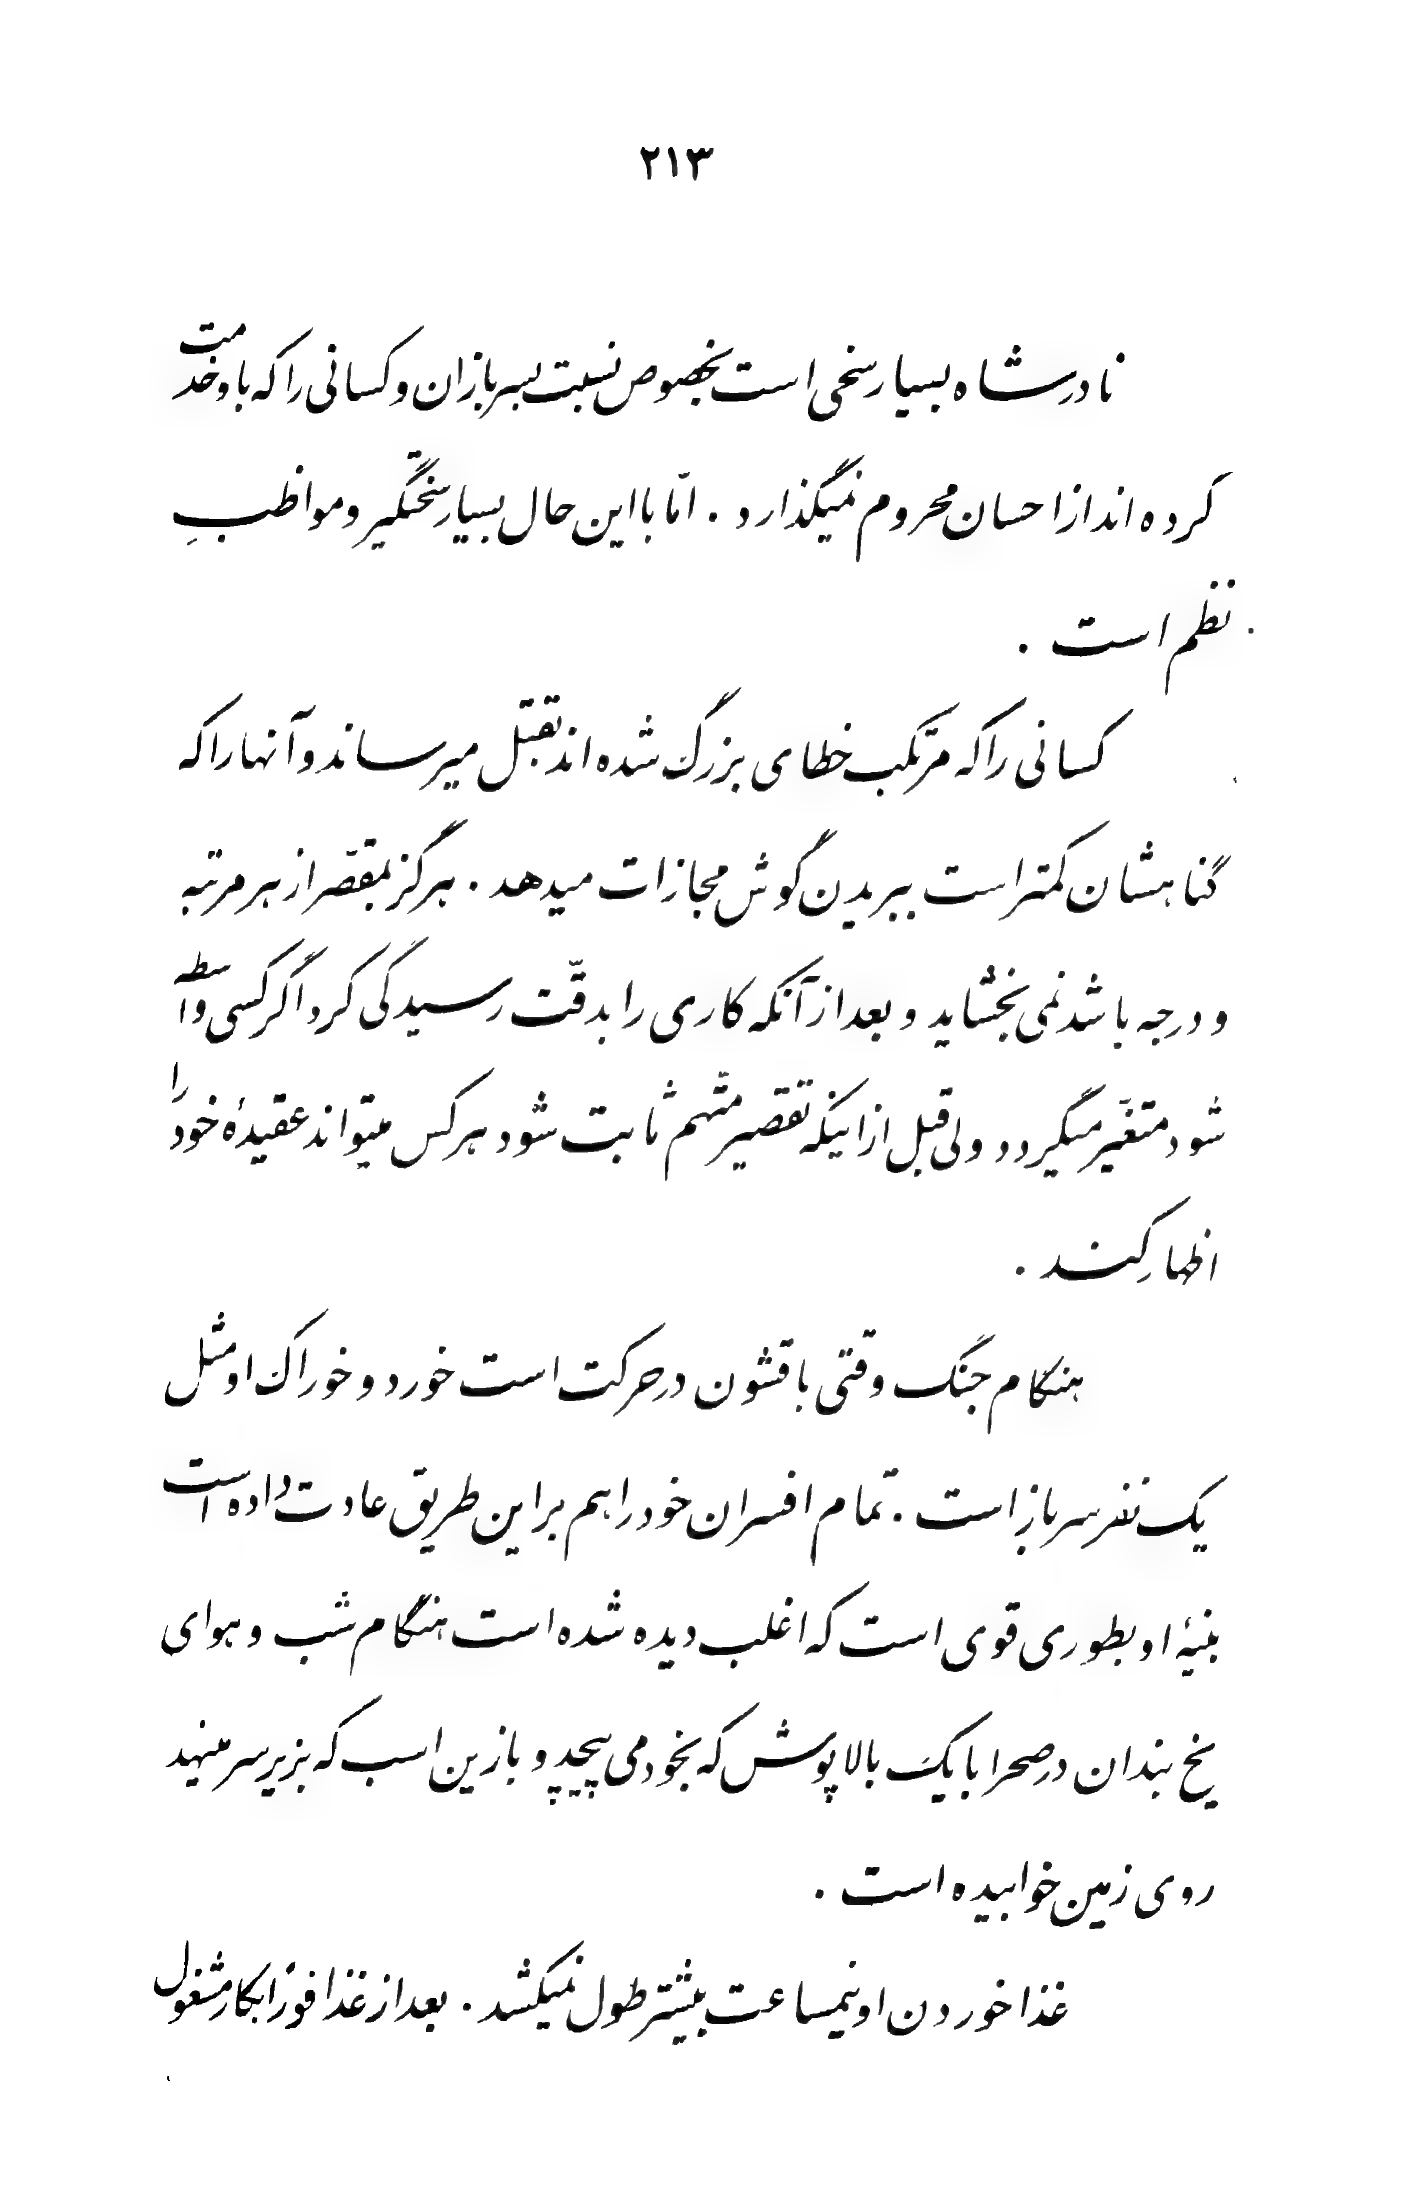 ۲۱۳
نادرشاه بسیار سخی است بخصوص نسبت بسربازان و کسانی را که باو خدمت
کرده اند از احسان محروم نمیگذارد . امّا با این حال بسیار سختگیر و مواظبِ
نظم است .
کسانی را که مرتکب خطای بزرگ شده اند بقتل میرساند و آنها را که
گناهشان کمتر است ببریدن گوش مجازات میدهد . هرگز بمقصّر از هر مرتبه
و درجه باشد نمی بخشاید و بعد از آنکه کاری را بدقّت رسیدگی کرد اگر کسی واسطه
شود متغیّر میگردد ولی قبل از اینکه تقصیر متّهم ثابت شود هر کس میتواند عقیدهٔ خود را
اظهار کند .
هنگام جنگ وقتی با قشون در حرکت است خورد و خوراک او مثل
یک نفر سرباز است . تمام افسران خود را هم بر این طریق عادت داده است
بنیهٔ او بطوری قوی است که اغلب دیده شده است هنگام شب و هوای
یخ بندان در صحرا با یک بالاپوش که بخود می پیچد و با زین اسب که بزیر سر مینهد
روی زمین خوابیده است .
غذا خوردن او نیمساعت بیشتر طول نمیکشد . بعد از غذا فوراً بکار مشغول